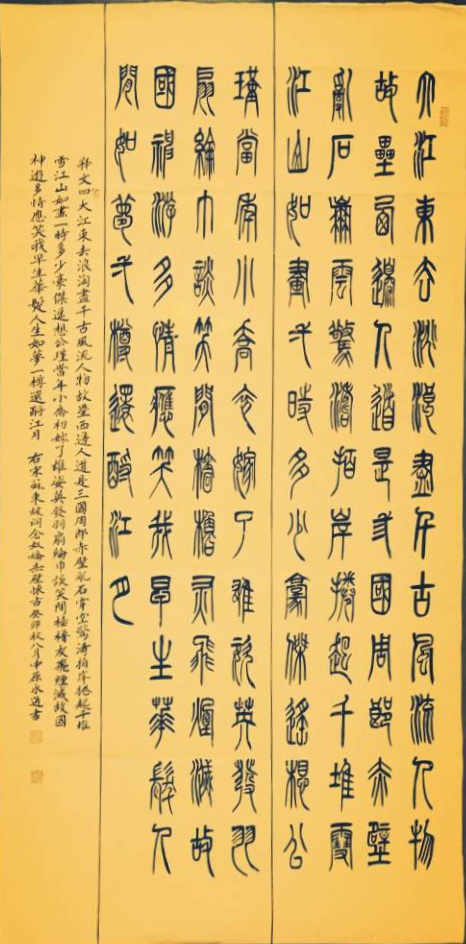 大江東去浪淘盡千古風流人物
故壘西邊人道是弎國周郎赤壁
亂石崩雲驚濤拍岸捲起千堆雪
江山如畫弌時多少豪傑遙想公
瑾當年小喬初嫁了雄姿英發羽
扇綸巾談笑間檣櫓灰飛煙滅故
國神游多情應笑我早生華髮人
間如夢弌樽還酹江月
釋文曰大江東去浪淘盡千古風流人物故壘西邊人道是三國周郎赤壁亂石穿空驚濤拍岸捲起千堆
雪江山如畫一時多少豪傑遙想公瑾當年小喬初嫁了雄姿英發羽扇綸巾談笑間檣櫓灰飛煙滅故國
神遊多情應笑我早生華髮人生如夢一樽還酹江月 右宋蘇東坡詞念奴嬌赤壁懷古癸卯秋八月中原水書